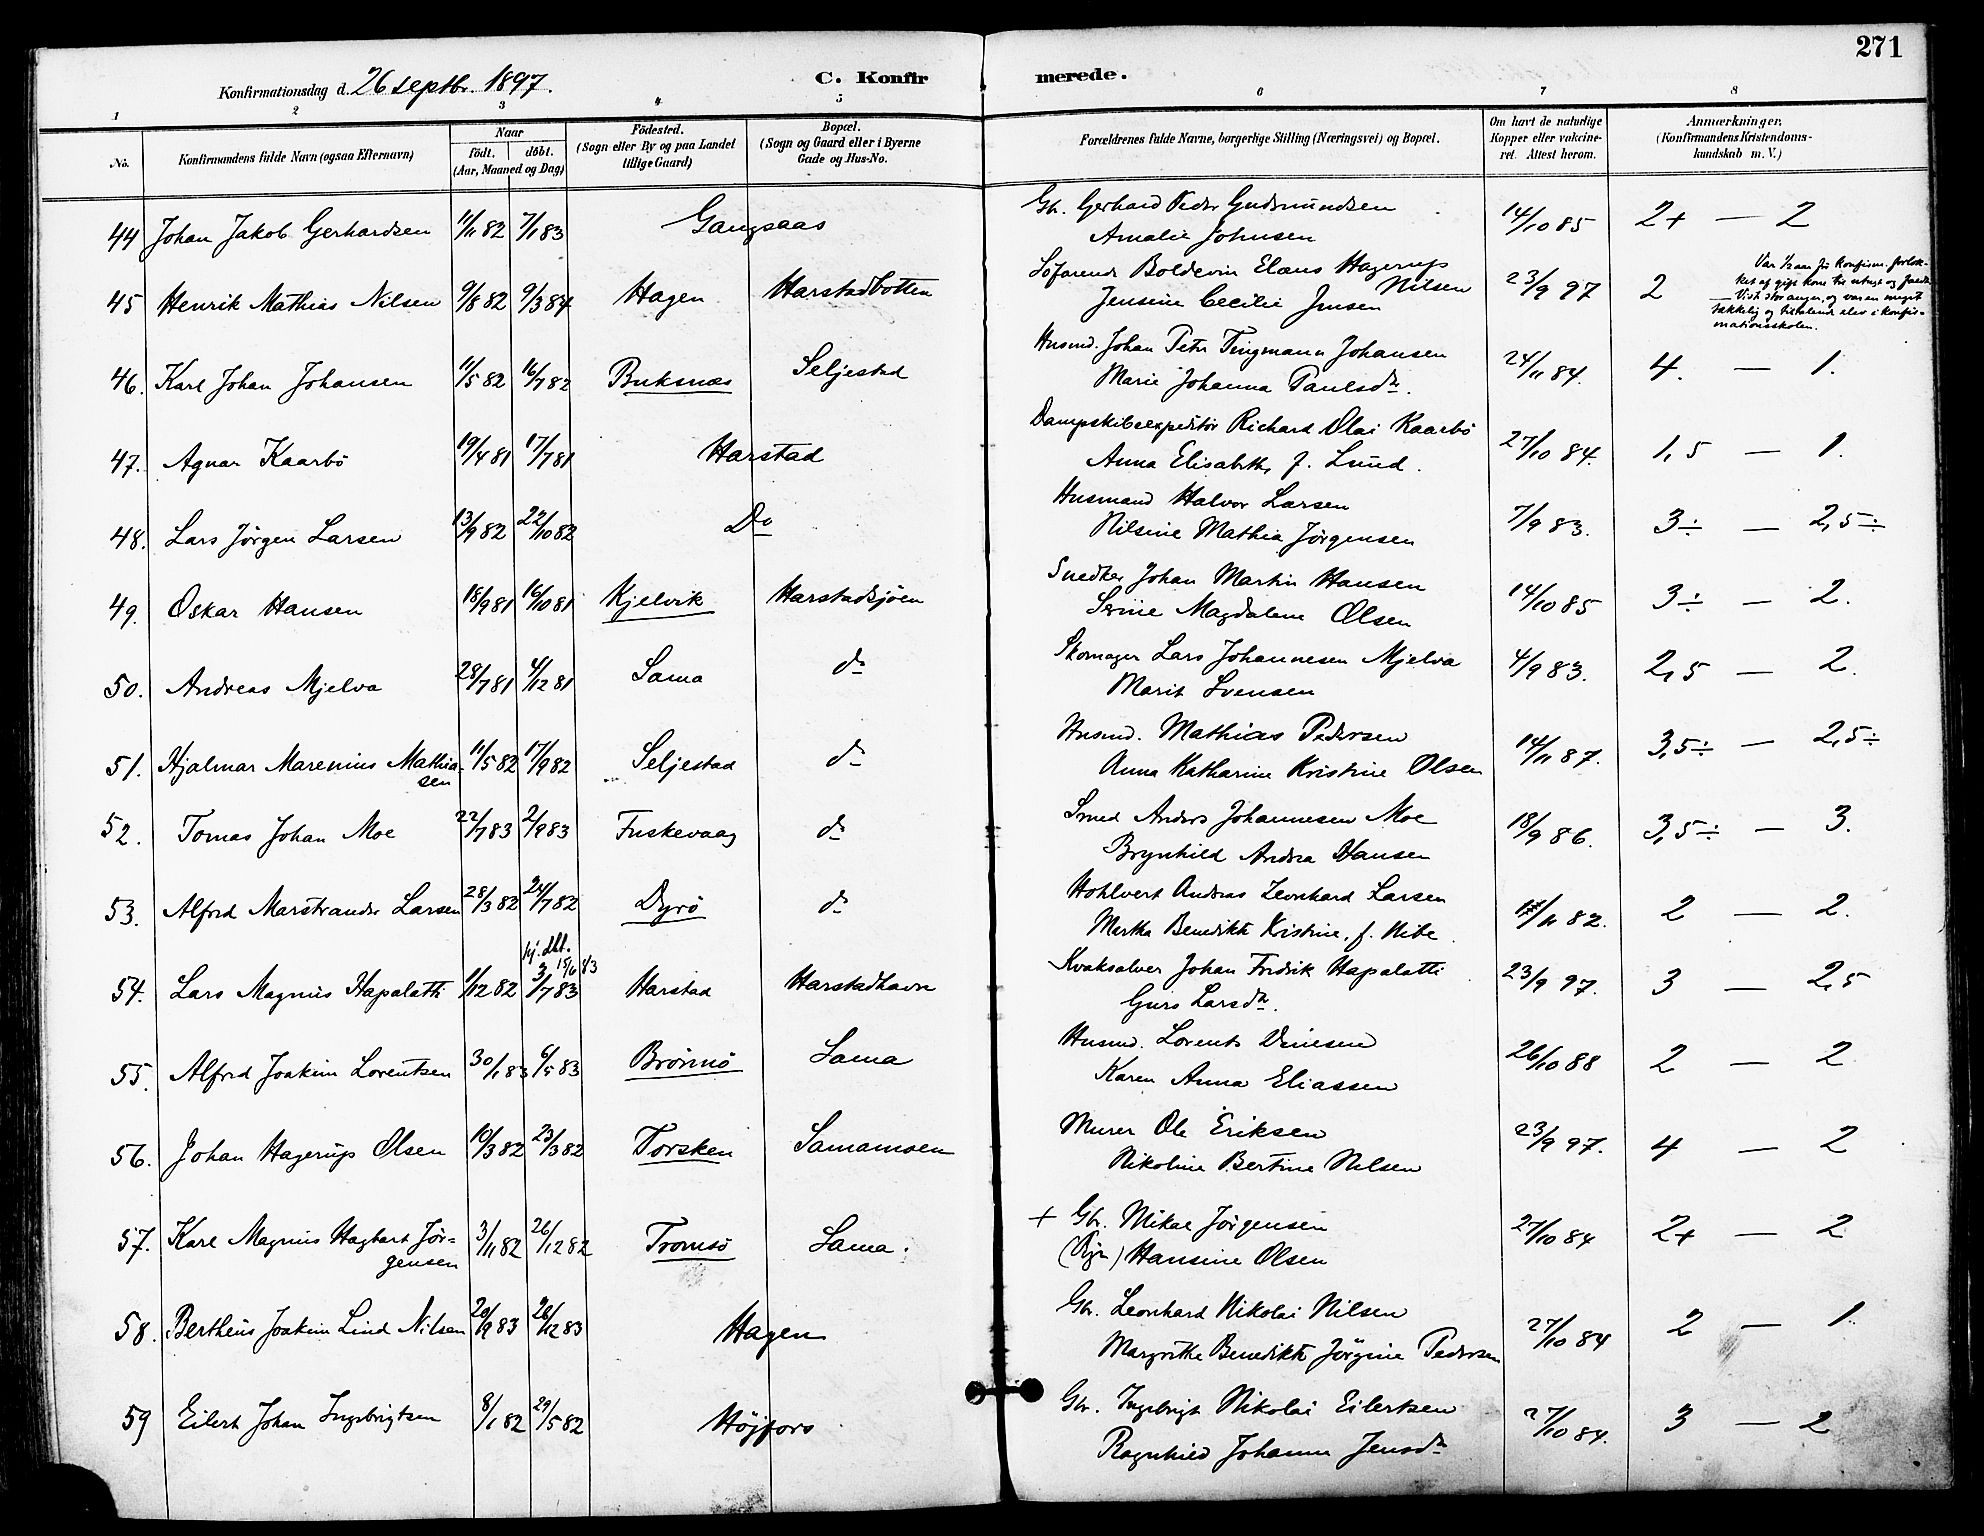 271
Konfirmationsdag d. 26 septbr. 1897.
C. Konfirmerede.
1 2 3 4 5 6 7 8
No.
Konfirmandens fulde Navn (ogsaa Efternavn)
Naar
født. døbt.
(Aar, Maaned og Dag)
Födested.
(Sogn eller By og paa Landet
tillige Gaard)
Bopæl.
(Sogn og Gaard eller i Byerne
Gade og Hus-No.
Forældrenes fulde Navne, borgerlige Stilling (Næringsvei) og Bopæl.
Om havt de naturlige
Kopper eller vakcine-
ret. Attest herom.
Anmærkninger.
(Konfirmandens Kristendoms-
kundskab m. V.)
44 Johan Jakob Gerhardsen 11/11 82 7/1 83 Gangsaas Gbr. Gerhard Peder Gudmundsen 14/10 85 2+ — 2
Amalie Johnsen
45 Henrik Mathias Nilsen 9/8 82 9/3 84 Hagen Harstadbotten Søfarende Boldevin Elæus Hagerup Nilsen 23/9 97 2
Jensine Cecilie Jensen
Var ½ aar før konfirm. forlok-
ket af
— Vist stor anger, og var en meget
tækkelig og elev i konfir-
mationsskolen.
46. Karl Johan Johansen 11/5 82 16/7 82 Buksnæs Seljestad Husmd. Johan Peter Tingmann Johansen 24/11 84. 4. — 1.
Marie Johanna Paulsdr.
47. Agnar Kaarbö 19/4 81 17/7 81 Harstad Dampskibsexpeditör Richard Olai Kaarbö 27/10 84. 1,5 — 1.
Anna Elisabeth, f. Lund.
48. Lars Jörgen Larsen 13/9 82 22/10 82 Do Husmand Halvor Larsen 7/9 83. 3÷ — 2,5÷
Nilsine Mathia Jörgensen
49. Oskar Hansen 18/9 81 16/10 81 Kjelvik Harstadsjöen Snedker Johan Martin Hansen 14/10 85 3÷ — 2.
Serine Magdalene Olsen
50. Andreas Mjelva 28/7 81 4/12 81 Sama do Skomager Lars Johannesen Mjelva 4/9 83. 2,5 — 2.
Marit Svensen
51. Hjalmar Marenius Mathia- 11/5 82 17/9 82 Seljestad do Husmd. Mathias Pedersen 14/11 87. 3,5÷ — 2,5÷
sen Anna Katharine Kristine Olsen
52. Tomas Johan Moe 22/7 83 2/9 83 Fuskevaag do Smed Anders Johannesen Moe 18/9 86. 3,5÷ — 3.
Brynhild Andrea Hansen
53. Alfred Marstrander Larsen 28/3 82 24/7 82 Dyrö do Andreas Leonhard Larsen /11 82. 2 — 2.
Martha Benedikte Kristine, f. Nibe.
hj. dbt. 15/6 83
54. Lars Magnus Hapalatti 1/12 82 3/7 83 Harstad Harstadhavn Kvaksalver Johan Fredrik Hapalatti 23/9 97. 3 — 2,5
Guro Larsdr.
55. Alfred Joakim Lorentsen 30/1 83 6/5 83 Brönnö Sama Husmd. Lorents Dinesen 26/10 88 2 — 2
Karen Anna Eliassen
56. Johan Hagerup Olsen 10/3 82 23/3 82 Torsken Samamoen Murer Ole Eriksen 23/9 97. 4 — 2
Nikoline Bertine Nilsen
57. Karl Magnus Hagbart Jör- 3/11 82 26/12 82 Tromsö Sama. + Gbr. Mikal Jörgensen 27/10 84 2+ — 2
gensen Hansine Olsen
58. Bertheus Joakim Lind Nilsen 20/9 83 26/12 83 Hagen Gbr. Leonhard Nikolai Nilsen 27/10 84 2 — 1.
Margrethe Benedikte Jörgine Pedersen
59 Eilert Johan Ingebrigtsen 8/1 82 29/5 82 Höjfors Gbr. Ingebrigt Nikolai Eilertsen 27/10 84. 3 — 2
Ragnhild Johanna Jensdr.